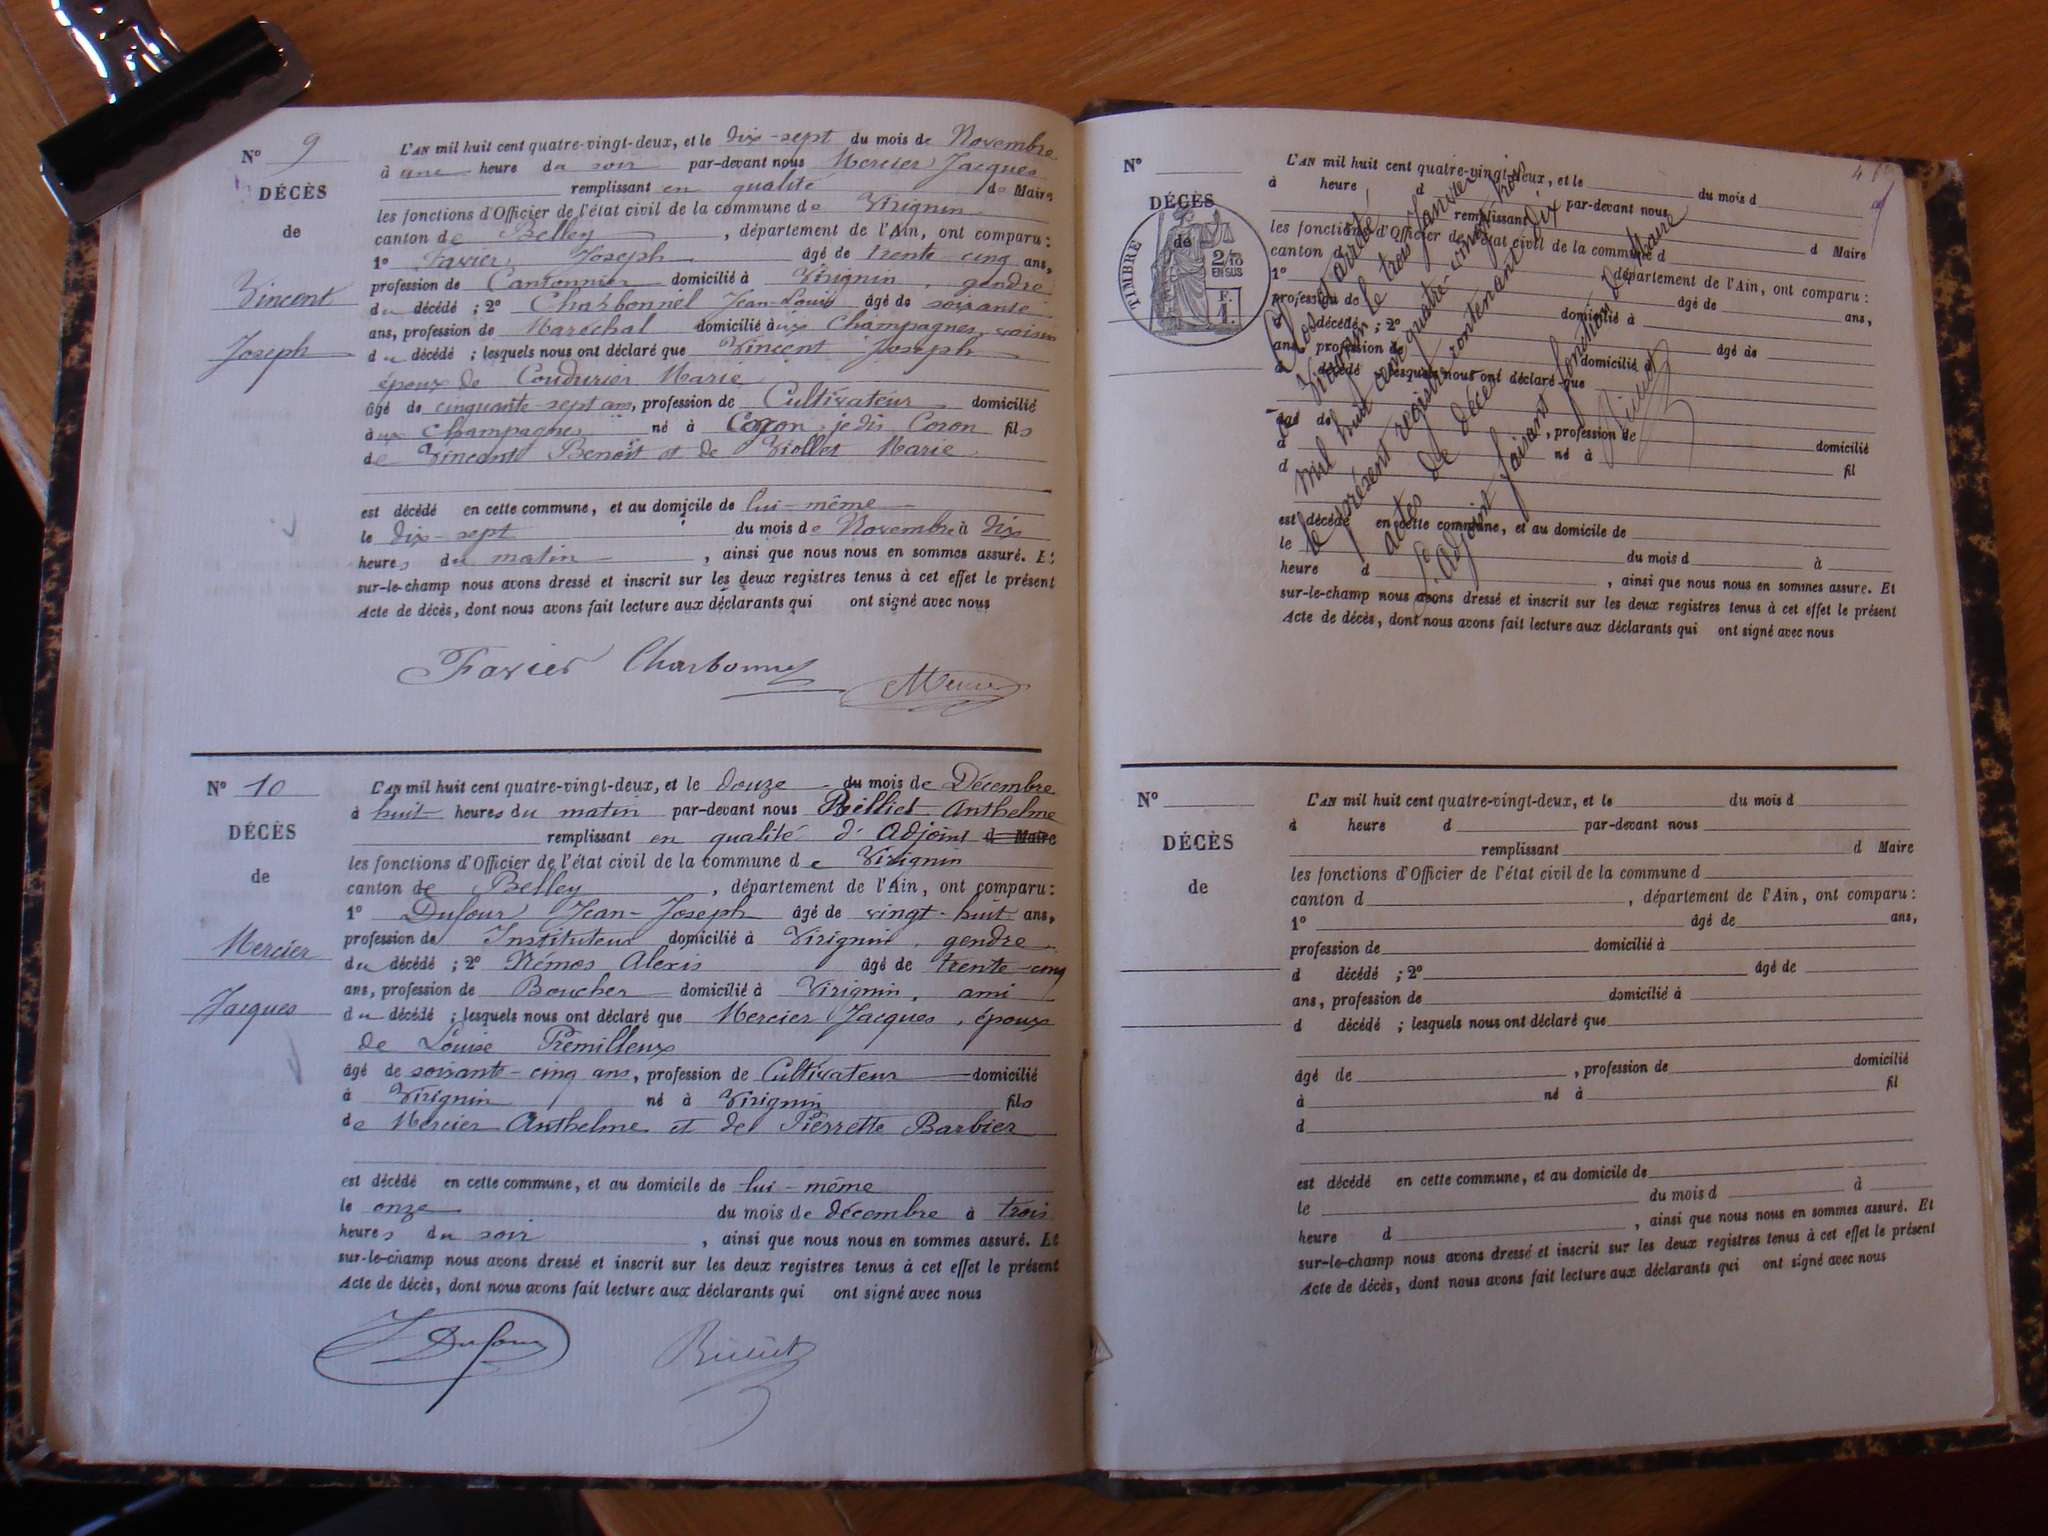 N° 9
DÉCÈS
de
Vincent
Joseph
L'AN mil huit cent quatre-vingt-deux, et le dix-sept du mois de Novembre
à une heure du soir par-devant nous Mercier Jacques
remplissant en qualité de Maire
les fonctions d'Officier de l'état civil de la commune de Virignin
canton de Belley, département de l'Ain, ont comparu :
1° Favier Joseph âgé de trente-cinq ans,
profession de Cantonnier domicilié à Virignin, gendre
du décédé ; 2° Charbonnel Jean-Louis âgé de soixante
ans, profession de Maréchal domicilié aux Champagnes, voisin
du décédé ; lesquels nous ont déclaré que Vincent Joseph
époux de Coudurier Marie
âgé de cinquante-sept ans, profession de Cultivateur domicilié
aux Champagnes né à Coron je dis Coron fils
de Vincent Benoît et de Viollet Marie
est décédé en cette commune, et au domicile de lui-même
le dix-sept du mois de Novembre à dix
heures du matin, ainsi que nous nous en sommes assuré. Et
sur-le-champ nous avons dressé et inscrit sur les deux registres tenus à cet effet le présent
Acte de décès, dont nous avons fait lecture aux déclarants qui ont signé avec nous
Favier Charbonnel Mercier
N° 10
DÉCÈS
de
Mercier
Jacques
L'AN mil huit cent quatre-vingt-deux, et le douze du mois de Décembre
à huit heures du matin par-devant nous Billiet Anthelme
remplissant en qualité d'Adjoint d Maire
les fonctions d'Officier de l'état civil de la commune de Virignin
canton de Belley, département de l'Ain, ont comparu :
1° Dufour Jean-Joseph âgé de vingt-huit ans,
profession de Instituteur domicilié à Virignin, gendre
du décédé ; 2° Némos Alexis âgé de trente-cinq
ans, profession de Boucher domicilié à Virignin, ami
du décédé ; lesquels nous ont déclaré que Mercier Jacques, époux
de Louise Premilleux
âgé de soixante-cinq ans, profession de Cultivateur domicilié
à Virignin né à Virignin fils
de Mercier Anthelme et de Pierrette Barbier
est décédé en cette commune, et au domicile de lui-même
le onze du mois de décembre à trois
heures du soir, ainsi que nous nous en sommes assuré. Et
sur-le-champ nous avons dressé et inscrit sur les deux registres tenus à cet effet le présent
Acte de décès, dont nous avons fait lecture aux déclarants qui ont signé avec nous
J Dufour Billiet
N°
DÉCÈS
de
TIMBRE
2/10
EN SUS
F.
1
L'AN mil huit cent quatre-vingt-deux, et le du mois d
à heure d par-devant nous
remplissant d Maire
les fonctions d'Officier de l'état civil de la commune d
canton d département de l'Ain, ont comparu :
1° âgé de ans,
profession de domicilié à
d décédé ; 2° âgé de
ans, profession de domicilié à
d décédé lesquels nous ont déclaré que
âgé de , profession de domicilié
à né à fil
d
est décédé en cette commune, et au domicile de
le du mois d à
heure d , ainsi que nous nous en sommes assuré. Et
sur-le-champ nous avons dressé et inscrit sur les deux registres tenus à cet effet le présent
Acte de décès, dont nous avons fait lecture aux déclarants qui ont signé avec nous
Clos et arrêté
à Virignin le trois Janvier
mil huit cent quatre-vingt-trois
le présent registre contenant dix
actes de décès
L'adjoint faisant fonction de Maire
Billiet
N°
DÉCÈS
de
L'AN mil huit cent quatre-vingt-deux, et le du mois d
à heure d par-devant nous
remplissant d Maire
les fonctions d'Officier de l'état civil de la commune d
canton d , département de l'Ain, ont comparu :
1° âgé de ans,
profession de domicilié à
d décédé ; 2° âgé de
ans, profession de domicilié à
d décédé ; lesquels nous ont déclaré que
âgé de , profession de domicilié
à né à fil
d
est décédé en cette commune, et au domicile de
le du mois d à
heure d , ainsi que nous nous en sommes assuré. Et
sur-le-champ nous avons dressé et inscrit sur les deux registres tenus à cet effet le présent
Acte de décès, dont nous avons fait lecture aux déclarants qui ont signé avec nous